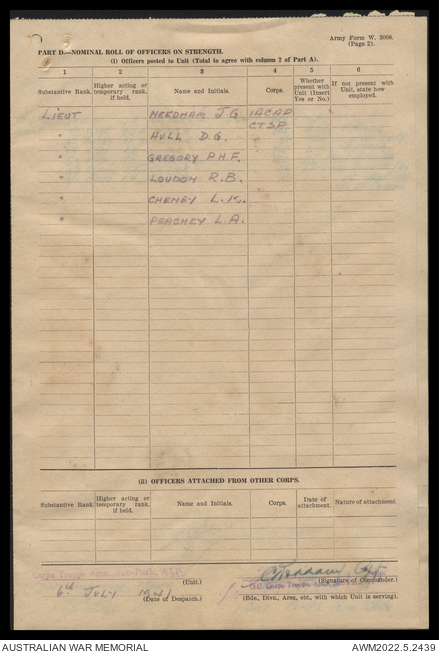 Army Form W. 3008.
(Page 2).
PART D.—NOMINAL ROLL OF OFFICERS ON STRENGTH.
(i) Officers posted to Unit (Total to agree with column 2 of Part A).
1 2 3 4 5 6
Substantive Rank. Higher acting or temporary rank, if held. Name and Initials. Corps. Whether present with Unit (Insert Yes or No.) If not present with Unit, state how employed.
LIEUT NEEDHAM J.G. 1ACAP
CTSP
" HULL D.G.
" GREGORY P.H.F.
" LOUDON R.B.
" CHENEY L.K.
" PEACHEY L.A.
(ii) OFFICERS ATTACHED FROM OTHER CORPS.
Substantive Rank. Higher acting or temporary rank, if held. Name and Initials. Corps. Date of attachment. Nature of attachment.
Corps Troops
(Unit.) (Signature of Commander.)
O.C. Corps Troops
6th JULY 1941
(Date of Despatch.) (Bde., Divn., Area, etc., with which Unit is serving).
AUSTRALIAN WAR MEMORIAL AWM2022.5.2439